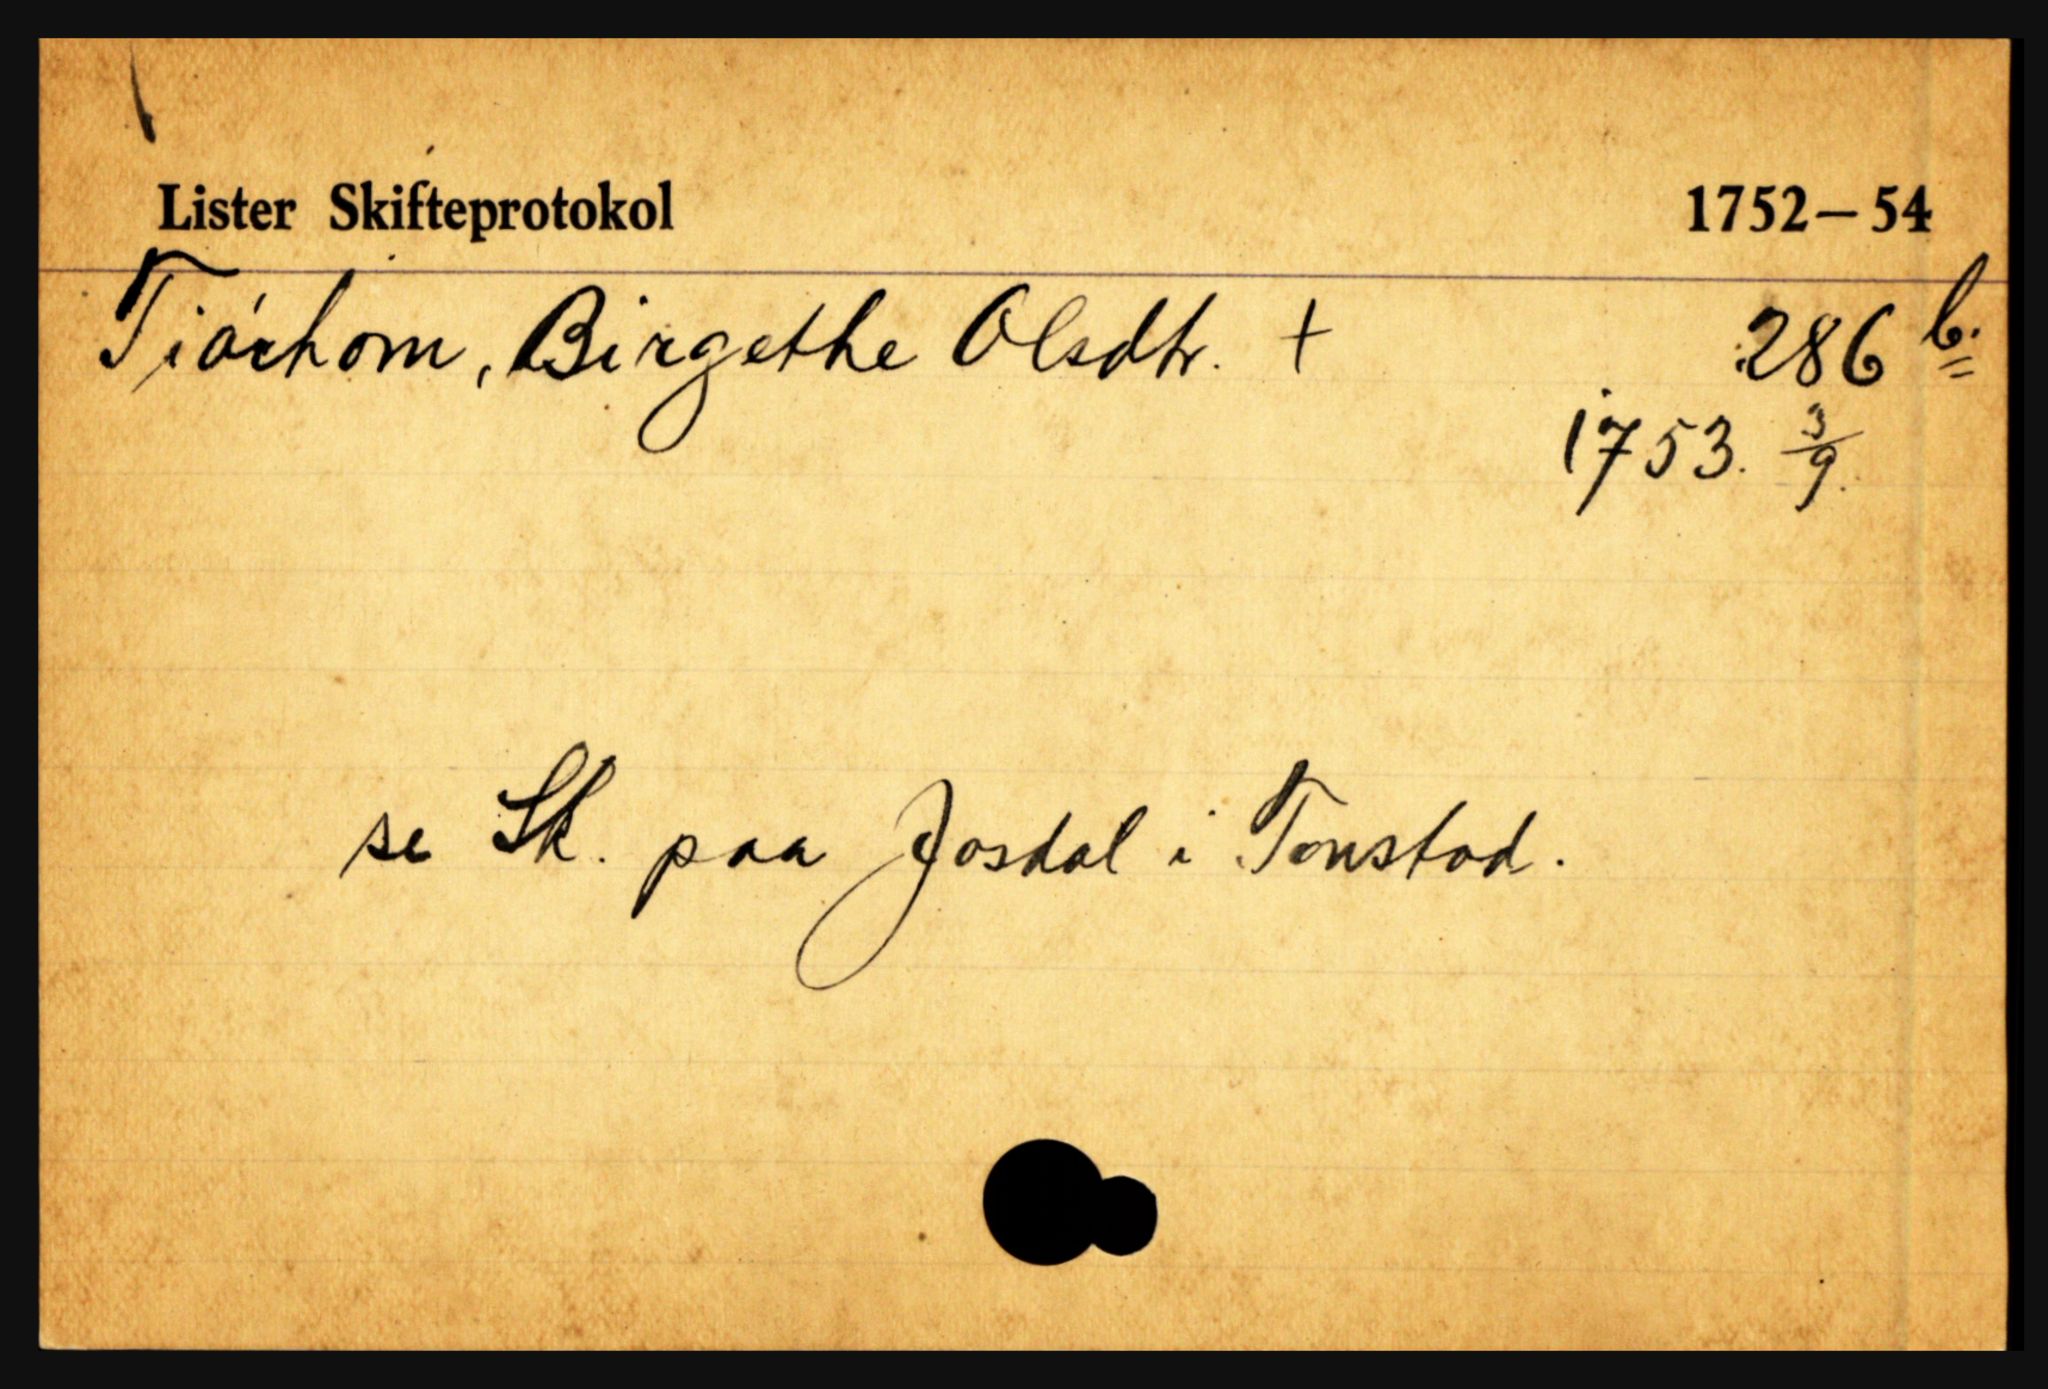 Lister Skifteprotokol 1752–54
Tiórhom, Birgethe Olsdtr. + 286 b.
1753. 3/9.
se Sk. paa Josdal i Tonstad.